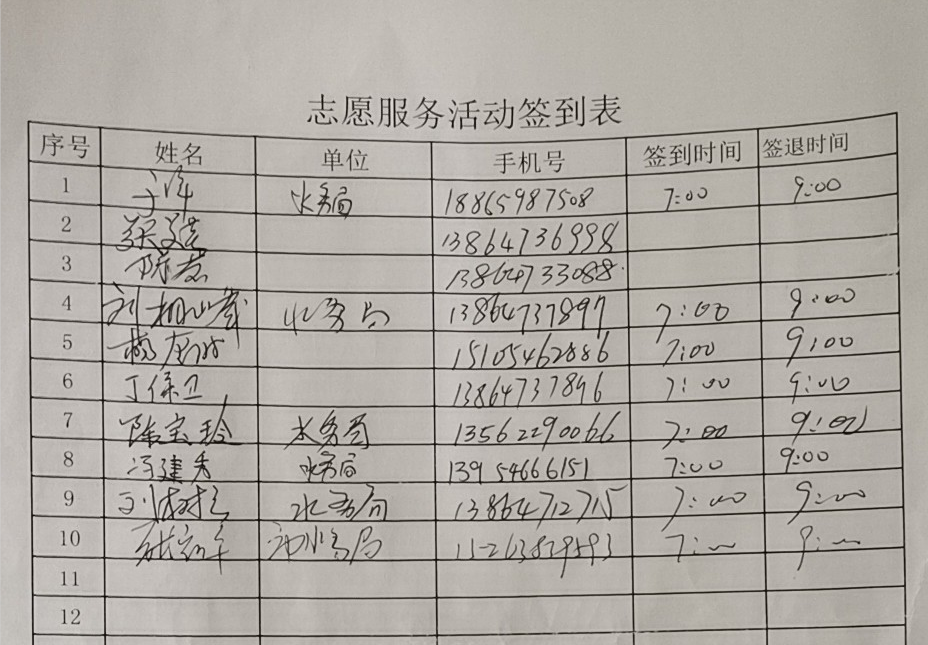 志愿服务活动签到表
序号 姓名 单位 手机号 签到时间 签退时间
1 于海 水务局 18865987508 7:00 9:00
2 13864736998
3 陈忠 13864733088
4 水务局 13864737897 7:00 9:00
5 15105462886 7:00 9:00
6 丁保卫 13864737896 7:00 9:00
7 陈宝玲 水务局 13562290066 7:00 9:00
8 冯建秀 水务局 13954666151 7:00 9:00
9 水务局 13864712715 7:00 9:00
10 7:00 9:00
11
12